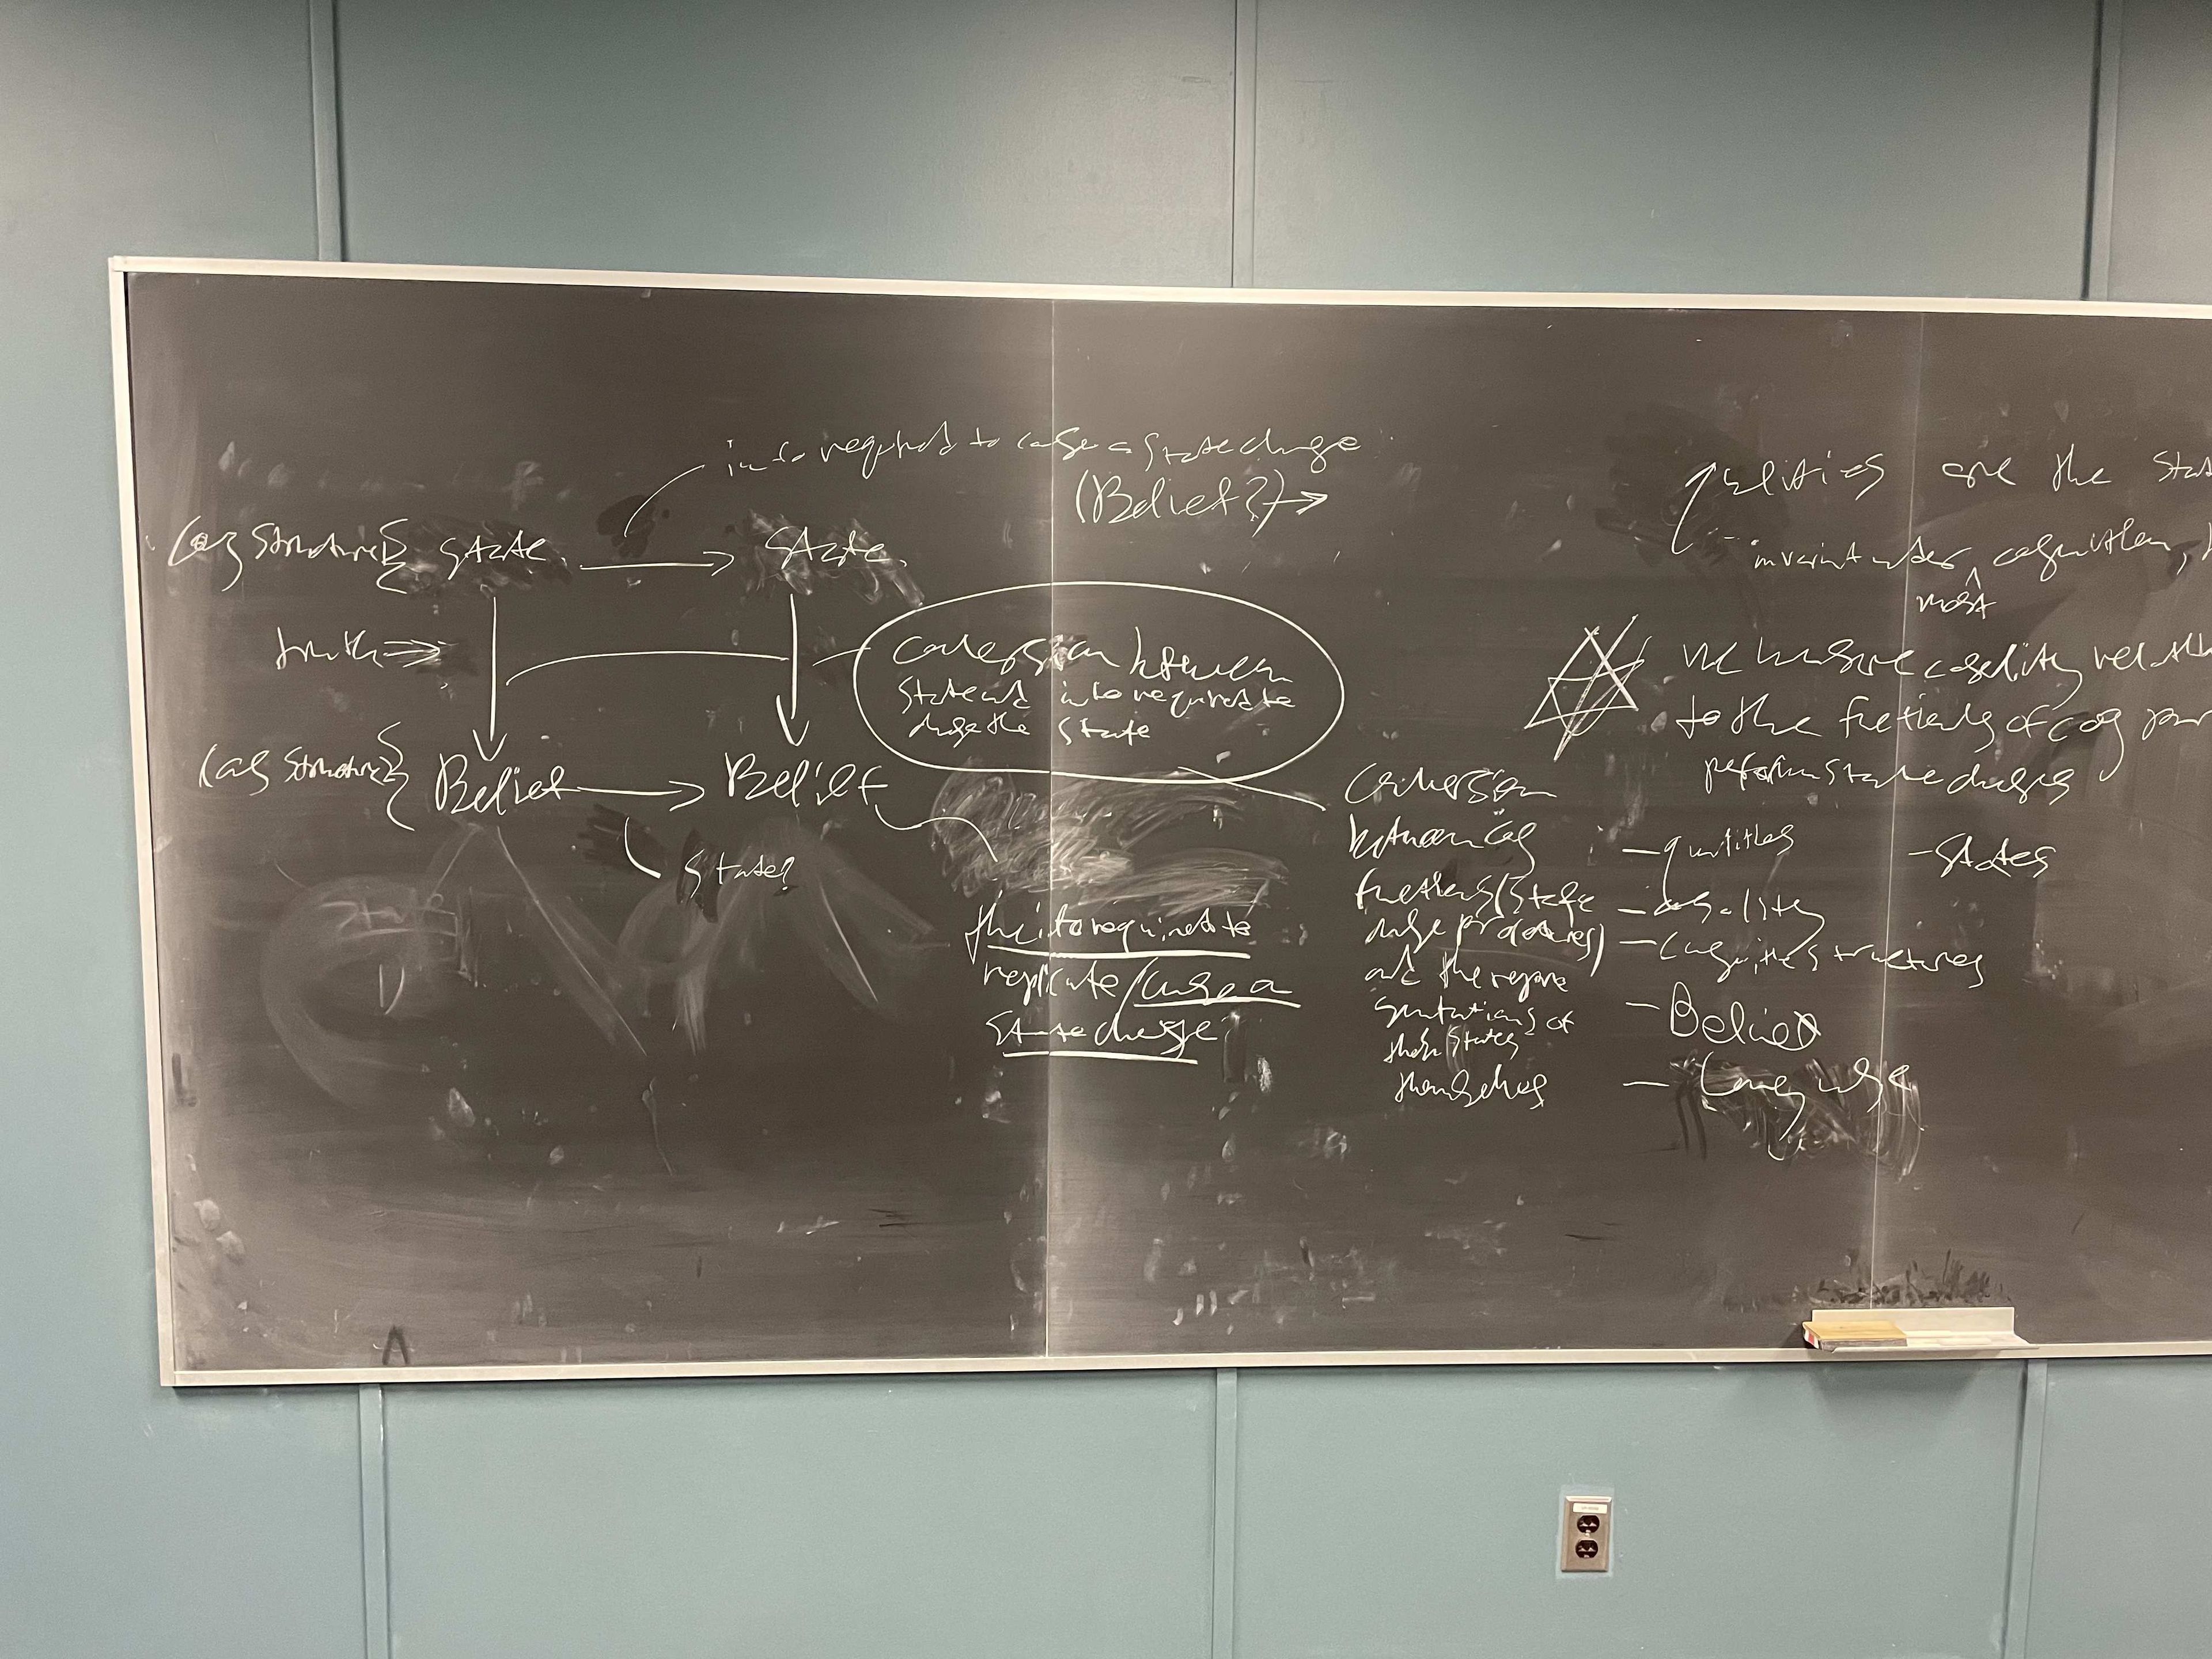 info required to cause a state change
(Belief?) →
cog structure { state → state
truth ⇒
conversion between
state and info required to
change the state
cog structure { Belief → Belief
states
the info required to
replicate/cause a
state change
conversion
between cog
functions (state
change procedures)
and the repre
sentations of
those states
themselves
are the
invariant under cognition,
most
we measure causality
to the functions of cog
perform state changes
- quantities
- states
- causality
- cognitive structures
- Belief
- Language